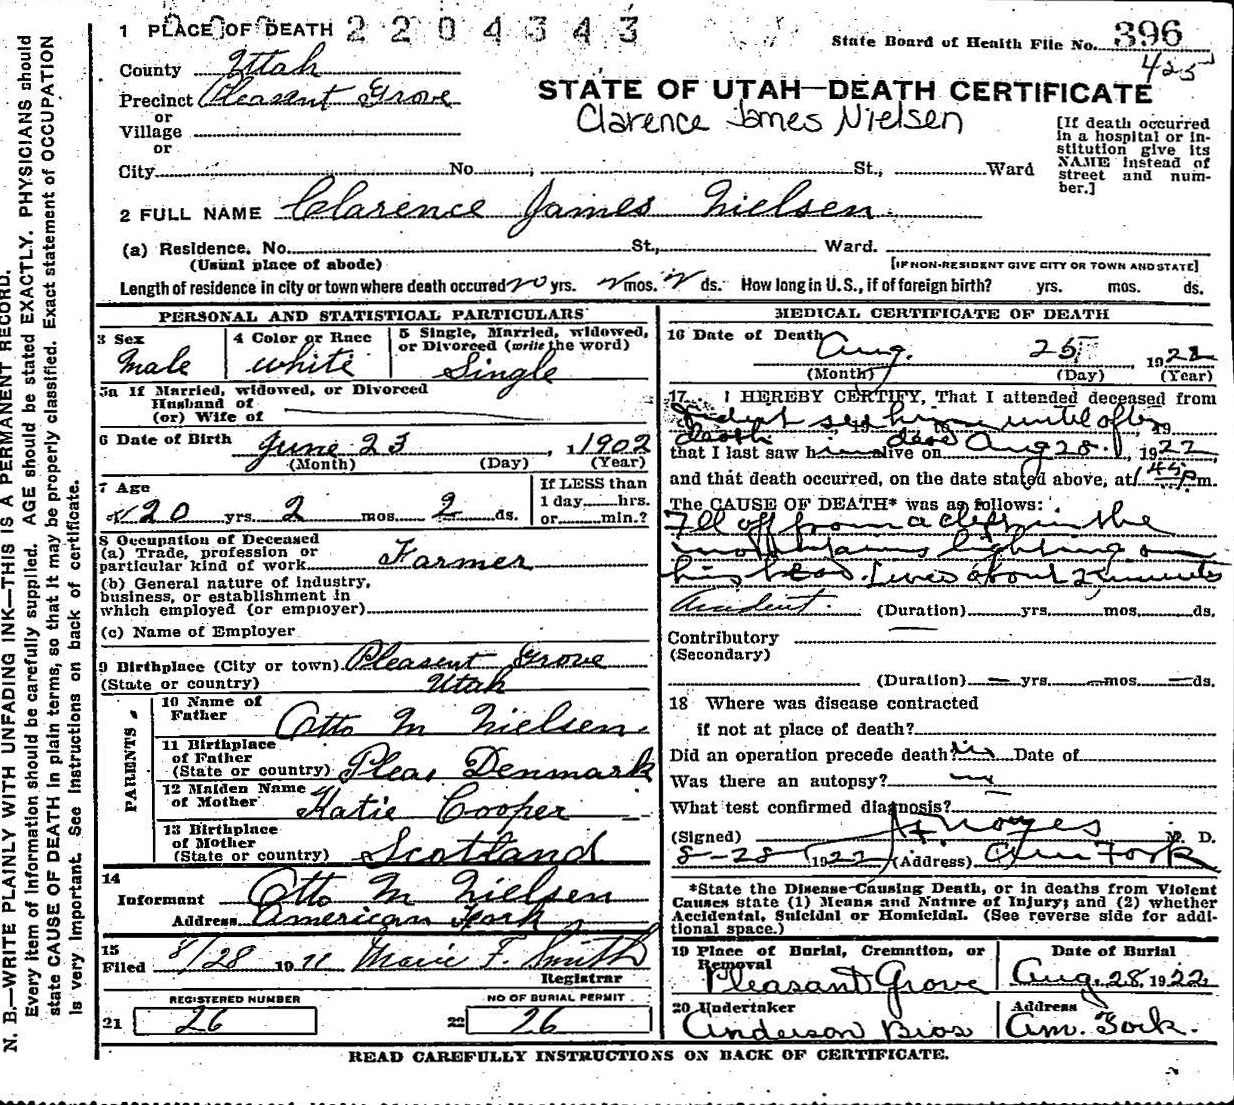 1 PLACE OF DEATH 2 2 0 4 3 4 3
State Board of Health File No. 396
425
County Utah
Precinct Pleasent Grove
or
Village
or
City No. ; St., Ward
STATE OF UTAH—DEATH CERTIFICATE
Clarence James Nielsen
[If death occurred in a hospital or in-
stitution give its
NAME instead of
street and num-
ber.]
2 FULL NAME Clarence James Nielsen
(a) Residence. No. St., Ward.
(Usual place of abode)
[IF NON-RESIDENT GIVE CITY OR TOWN AND STATE]
Length of residence in city or town where death occured 20 yrs. 2 mos. 2 ds. How long in U. S., if of foreign birth? yrs. mos. ds.
PERSONAL AND STATISTICAL PARTICULARS
3 Sex
Male
4 Color or Race
white
5 Single, Married, widowed,
or Divorced (write the word)
Single
5a If Married, widowed, or Divorced
Husband of
(or) Wife of
6 Date of Birth June 23, 1902
(Month) (Day) (Year)
7 Age
20 yrs. 2 mos. 2 ds.
If LESS than
1 day hrs.
or min.?
8 Occupation of Deceased
(a) Trade, profession or
particular kind of work Farmer
(b) General nature of industry,
business, or establishment in
which employed (or employer)
(c) Name of Employer
9 Birthplace (City or town) Pleasent Grove
(State or country) Utah
PARENTS
10 Name of
Father Otto M Nielsen
11 Birthplace
of Father
(State or country) Pleas Denmark
12 Maiden Name
of Mother Katie Cooper
13 Birthplace
of Mother
(State or country) Scotland
14
Informant Otto M Nielsen
Address American Fork
15
Filed 8/28 19 Marie F. Smith
Registrar
REGISTERED NUMBER
21 26
NO OF BURIAL PERMIT
22 26
MEDICAL CERTIFICATE OF DEATH
16 Date of Death
Aug. 25, 1922
(Month) (Day) (Year)
17 I HEREBY CERTIFY, That I attended deceased from
Did not see him until after
death
that I last saw him alive on dead Aug 28, 1922
and that death occurred, on the date stated above, at 1 45 P m.
The CAUSE OF DEATH* was as follows:
Fell off from a cleft in the
mountains lighting on
his head. Lived about 25 minutes
Accident. (Duration) yrs. mos. ds.
Contributory
(Secondary)
(Duration) yrs. mos. ds.
18 Where was disease contracted
if not at place of death?
Did an operation precede death? Date of
Was there an autopsy? no
What test confirmed diagnosis?
(Signed) Noyes M. D.
8-28 1922 (Address) Am Fork
*State the Disease Causing Death, or in deaths from Violent
Causes state (1) Means and Nature of Injury; and (2) whether
Accidental, Suicidal or Homicidal. (See reverse side for addi-
tional space.)
19 Place of Burial, Cremation, or
Removal
Pleasant Grove
Date of Burial
Aug. 28, 1922
20 Undertaker
Anderson Bros
Address
Am. Fork.
READ CAREFULLY INSTRUCTIONS ON BACK OF CERTIFICATE.
N. B.—WRITE PLAINLY WITH UNFADING INK—THIS IS A PERMANENT RECORD.
Every item of information should be carefully supplied. AGE should be stated EXACTLY. PHYSICIANS should
state CAUSE OF DEATH in plain terms, so that it may be properly classified. Exact statement of OCCUPATION
is very important. See instructions on back of certificate.